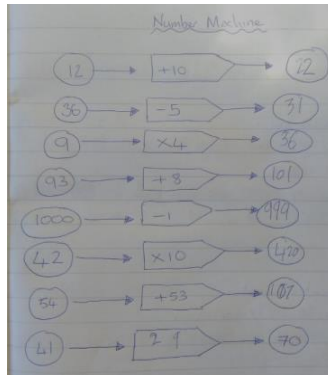 Number Machine
12 +10 22
36 -5 31
9 ×4 36
93 +8 101
1000 -1 999
42 ×10 420
54 +53 107
41 29 70